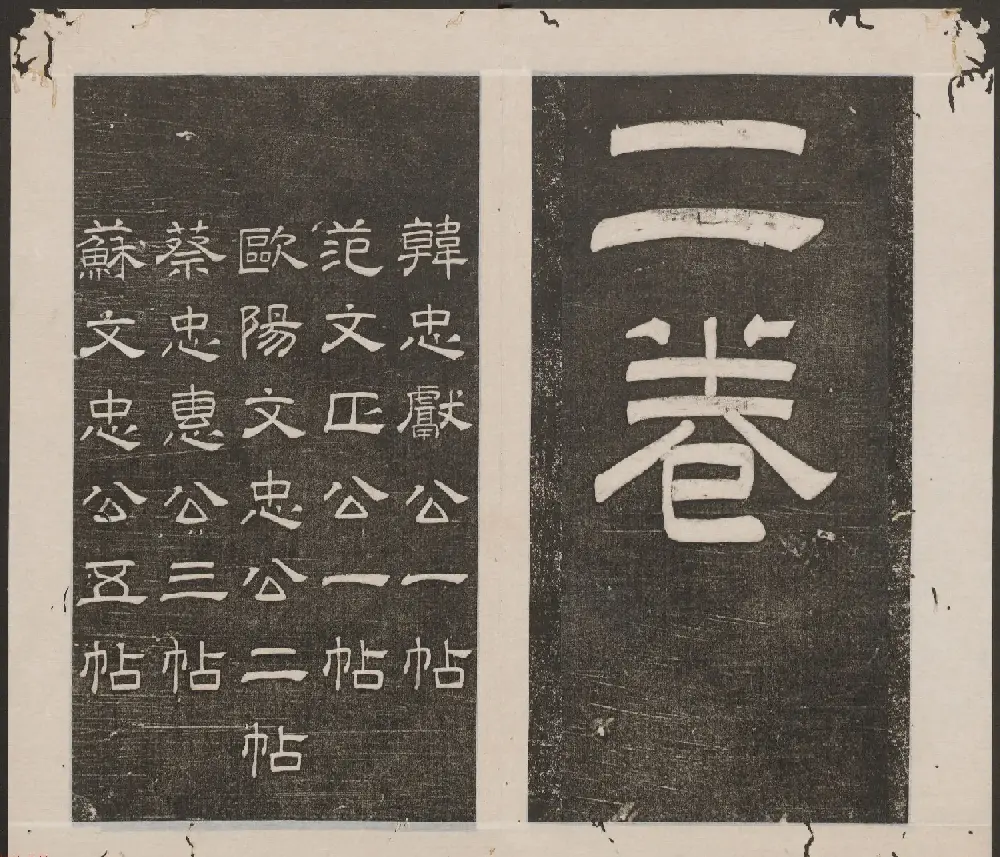 二卷
韓忠獻公一帖
范文正公一帖
歐陽文忠公二帖
蔡忠惠公三帖
蘇文忠公五帖